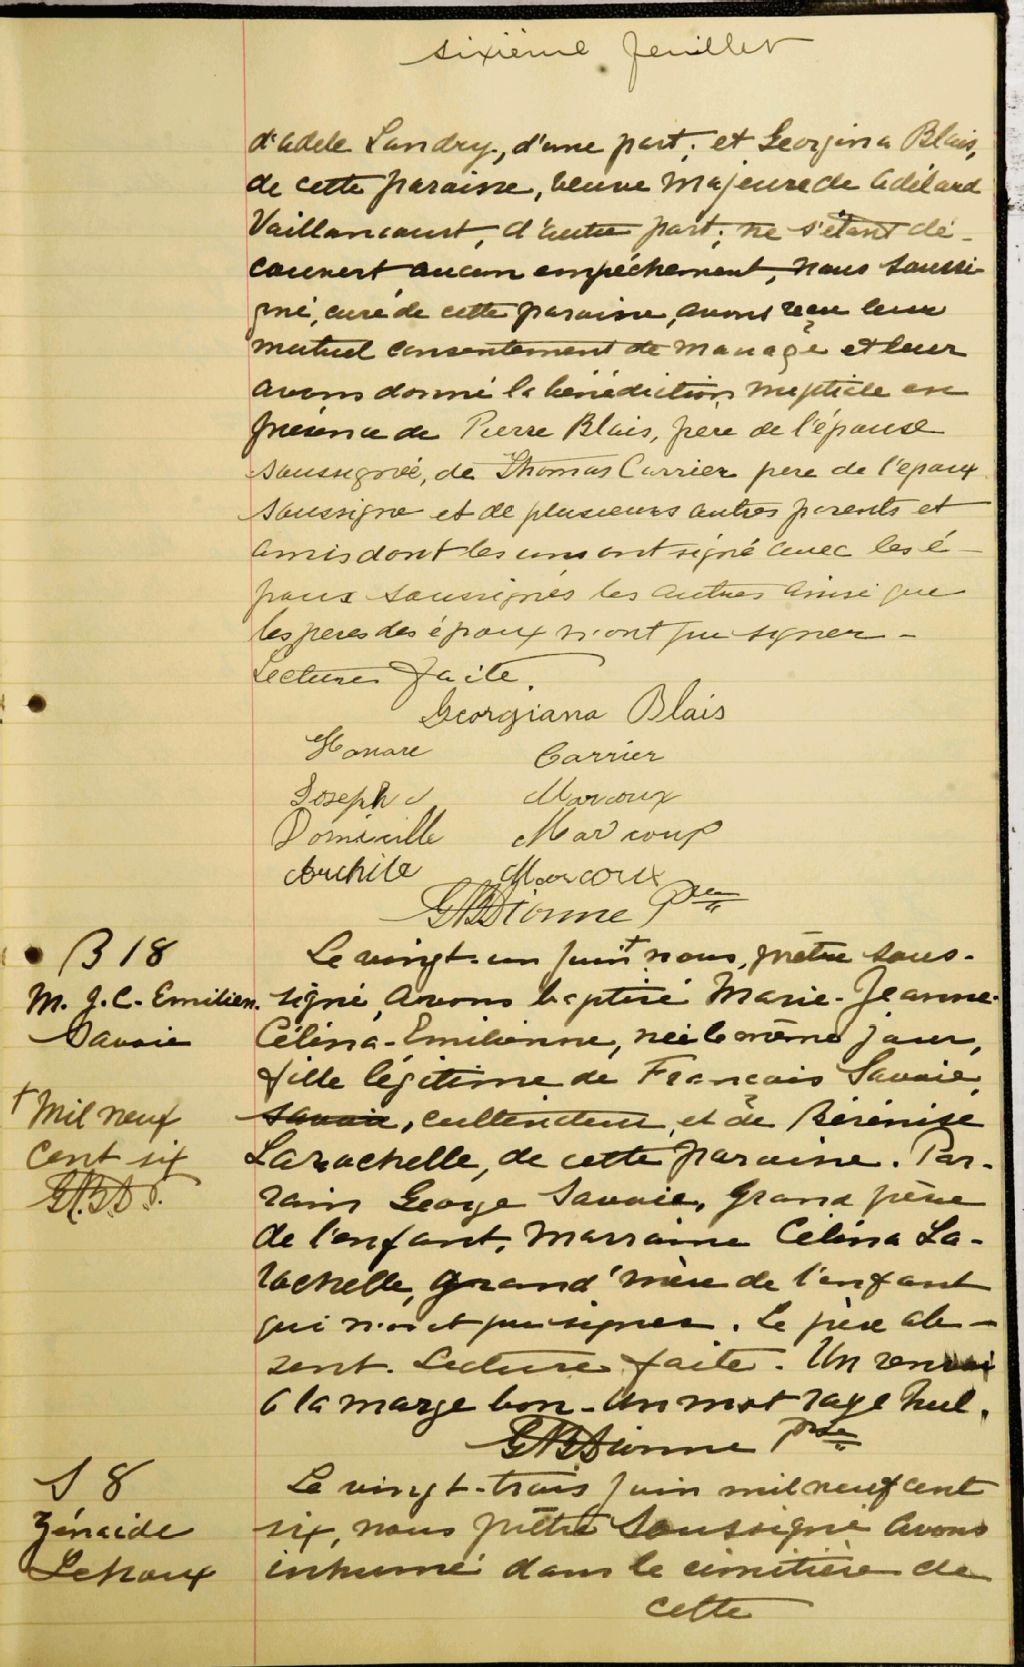 sixième feuillet
d'Adele Landry, d'une part; et Georgina Blais,
de cette paroisse, veuve majeure de Adélard
Vaillancourt, d'autre part; ne s'étant dé-
couvert aucun empêchement, nous soussi-
gné, curé de cette paroisse, avons reçu leur
mutuel consentement de mariage et leur
avons donné la bénédiction nuptiale en
présence de Pierre Blais, père de l'épouse
soussignée, de Thomas Carrier pere de l'epoux
soussigne et de plusieurs autres parents et
amis dont les uns ont signé avec les é-
poux soussignés les autres ainsi que
les peres des époux n'ont pu signer -
Lecture faite.
Georgiana Blais
Honore Carrier
Joseph J Marcoux
Domicille Marcoux
Archile Marcoux
G.B. Dionne Ptre
B 18
M. J. C. Emilien.
Savoie
+ Mil neuf
cent six
G.B.D.
Le vingt-un juin + nous, prêtre sous-
signé, avons baptisé Marie-Jeanne-
Célina-Emilienne, née le même jour,
fille légitime de François Savoie,
Savoie, cultivateur, et de Bérénise
Larochelle, de cette paroisse. Par-
rain George Savoie, Grand père
de l'enfant, marraine Célina La-
rochelle, grand'mère de l'enfant
qui n'ont pu signer. Le père ab-
sent. Lecture faite. Un renvoi
à la marge bon - Un mot rayé nul.
G.B. Dionne Ptre
S 8
Zénaide
Lehoux
Le vingt-trois juin mil neuf cent
six, nous prêtre soussigné avons
inhumé dans le cimitière de
cette